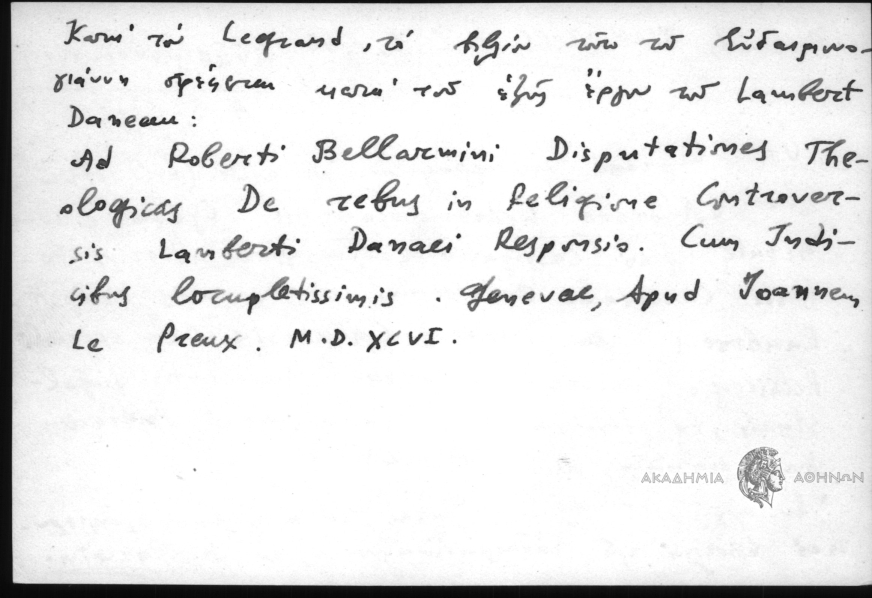 Κατά τόν Legrand, τό βιβλίον τοῦτο τοῦ Εὐδαιμονο-
γιάννη στρέφεται κατά τοῦ ἑξῆς ἔργου τοῦ Lambert
Daneau:
Ad Roberti Bellarmini Disputationes The-
ologicas De rebus in Religione Controver-
sis Lamberti Danaei Responsio. Cum Indi-
cibus locupletissimis. Genevae, Apud Joannem
Le Preux. M.D.XCVI.
ΑΚΑΔΗΜΙΑ ΑΘΗΝΩΝ